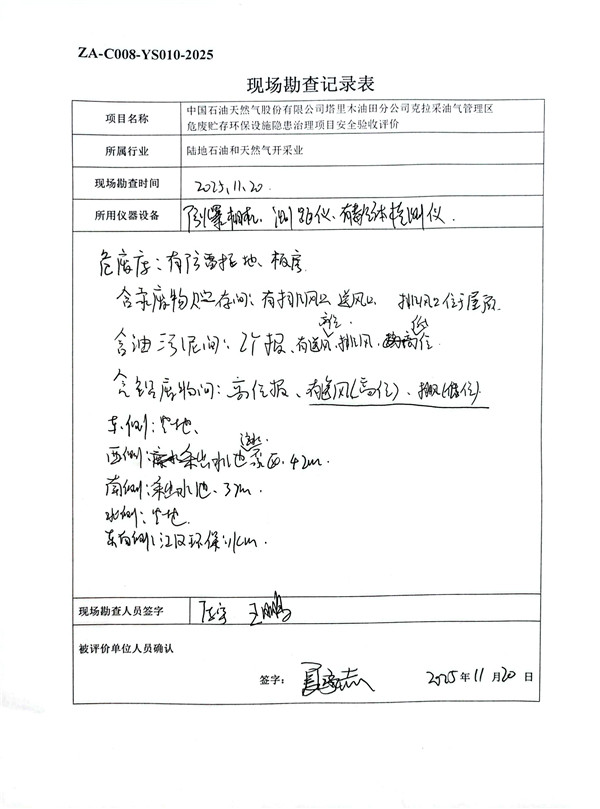 ZA-C008-YS010-2025
现场勘查记录表
项目名称
中国石油天然气股份有限公司塔里木油田分公司克拉采油气管理区
危废贮存环保设施隐患治理项目安全验收评价
所属行业
陆地石油和天然气开采业
现场勘查时间
2025.11.20
所用仪器设备
防爆相机、测距仪、有毒气体检测仪.
危废库:有防雷接地、板房
含汞废物贮存间:有排风口 送风口 排风口位于屋顶
含油污泥间:2个报、有送风高位、排风、低位
含铅废物间:高位报、有送风(高位)、排风(低位)
东侧:空地、
西侧:采出水池 42m.
南侧:采出水池、37m.
北侧:空地.
东南侧:江汉环保
现场勘查人员签字
王鹏
被评价单位人员确认
签字:
2025年11月20日